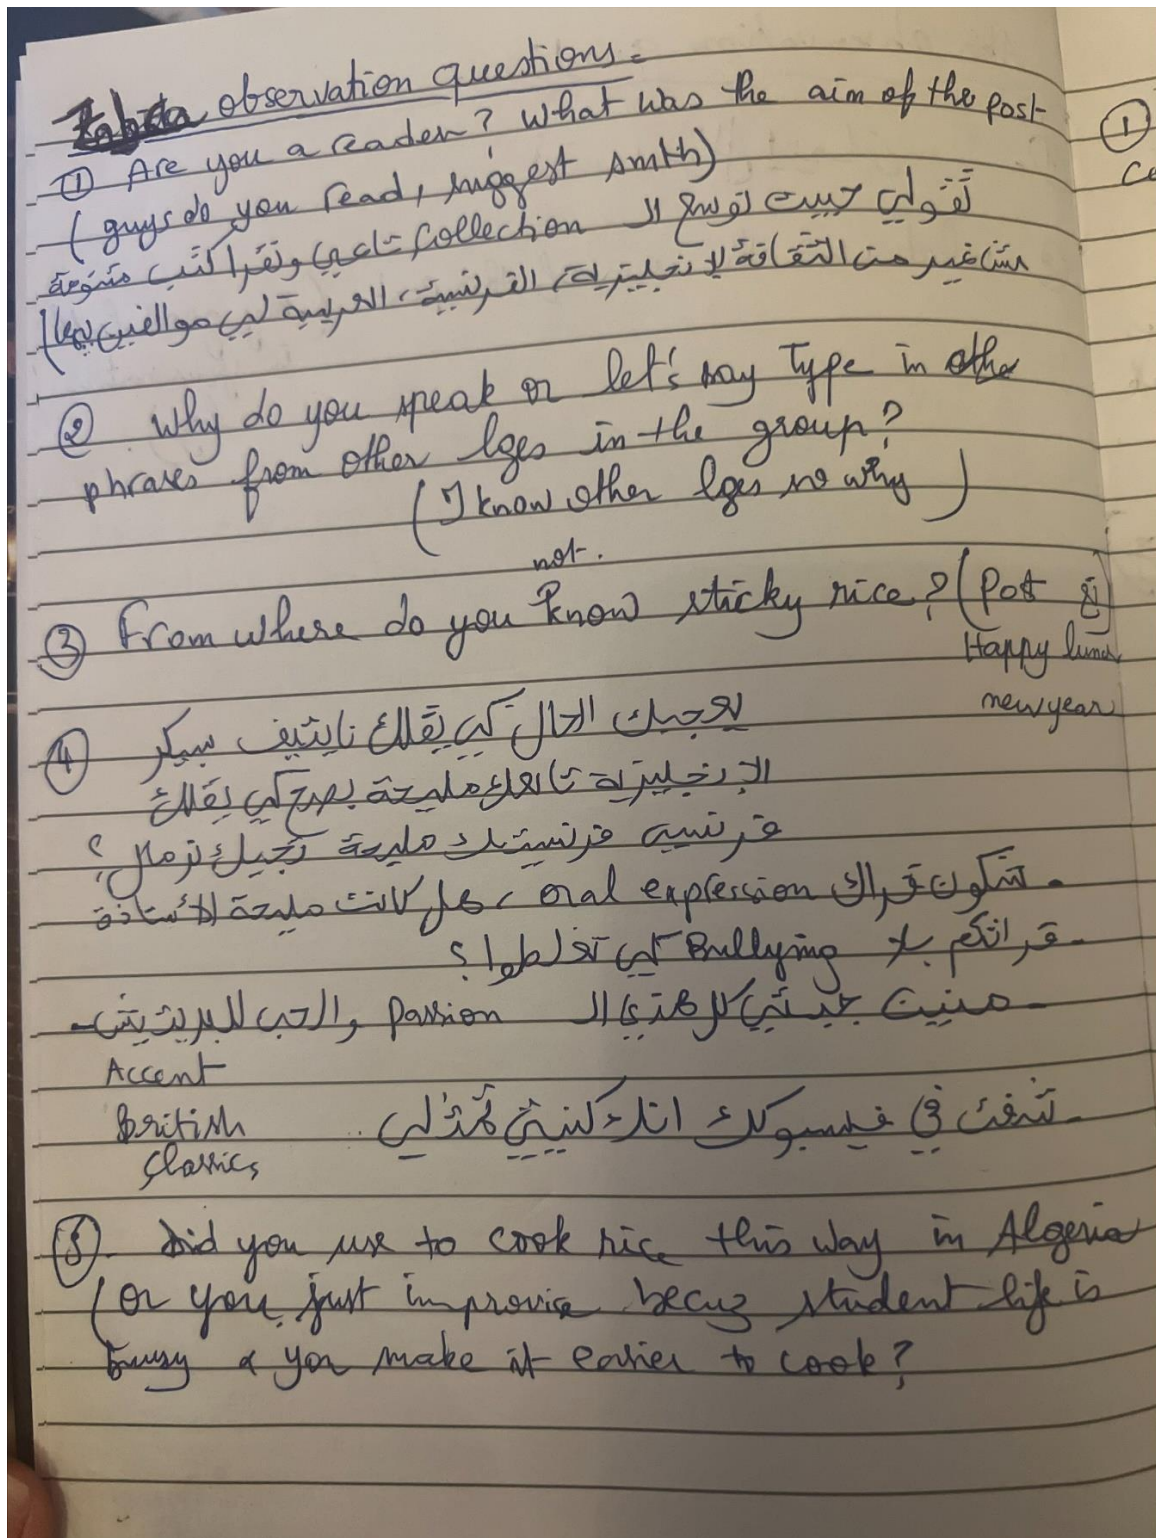 observation questions.
① Are you a reader? What was the aim of the post
(guys do you read, suggest smth)
تقولي حبيت نوسع الـ collection تاعي ونقرا كتب متنوعة
مشي غير من الثقافة الإنجليزية، الفرنسية، العربية لي موالفين بها)
② Why do you speak or let's say type in other
phrases from other lges in the group?
(I know other lges so why
not.
③ From where do you know sticky rice? (Post
Happy lunar
new year
④ يعجبك الحال كي يقلك نايتيف سبيكر
الإنجليزية تاعك مليحة بصح كي يقلك
فرنسي فرنسيتك مليحة تجيك نرمال؟
- شكون قراك oral expression، هل كانت مليحة الأستاذة
- قراتكم بلا Bullying كي تغلطوا؟
- منين جبتي كل هذي الـ passion والحب للبريتيش
Accent
British
Classics
- شفت في فيسبوكك انك كنتي تمثلي ..
⑤. Did you use to cook rice this way in Algeria
(or you just improvise becuz student life is
busy & you make it easier to cook?
①